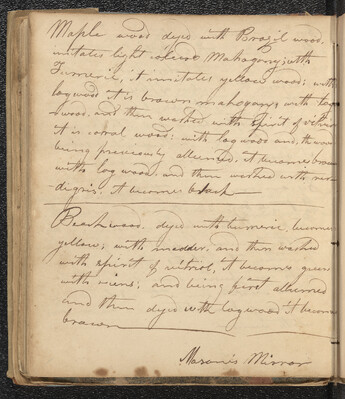 Maple wood dyed with Brazil wood,
imitates light colored Mahogony; with
Turmeric, it imitates yellow wood; with
logwood it is brown mahogany; with log
wood, and then washed with spirit of vitriol
it is coral wood; with logwood and, the wood
being previously allumed, it becomes brown
with logwood, and then washed with ver-
digris, it becomes black
Beachwood, dyed with turmeric, becomes
yellow; with madder, and then washed
with spirit of vitriol, it becomes green
with veins; and being first allumed
and then dyed with logwood it becomes
brown
Masonis Mirror